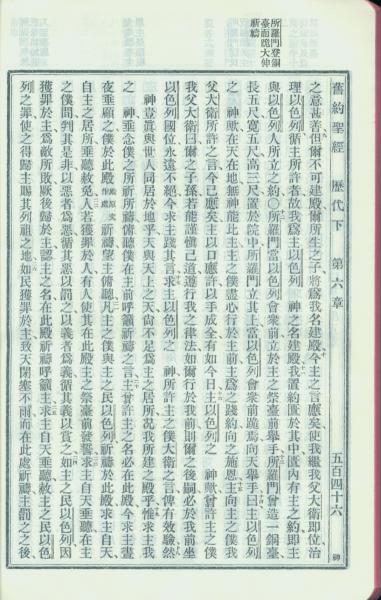 所羅門登銅
臺而跪大伸
祈禱
舊約聖經 歷代下 第六章 五百四十六 神
之意甚善但爾不可建殿爾所生之子將爲我名建殿今主之言應矣使我繼我父大衛即位治
理以色列循主所許者故我爲主以色列 神之名建殿我置約匱於其中匱內有主之約即主
與以色列人所立之約○所羅門當以色列會衆前立於主之祭臺前舉手所羅門曾造一銅臺
長五尺寬五尺高三尺置於院中所羅門立其上當以色列會衆前跪焉向天舉手曰主以色列
之 神歟在天在地無神能比主主之僕盡心行於主前主爲之踐約向之施恩主向主之僕我
父大衛所許之言今已應矣主以口應許以手成全有如今日主以色列之 神歟曾許主之僕
我父大衛曰爾之子孫若能謹愼己道遵行我之律法如爾行於我前則爾之後嗣必於我前坐
以色列國位永遠不絕今求主踐其言求主以色列之 神所許主之僕大衛之言俾有效驗然
神豈眞與世人同居於地乎天與天上之天尙不足爲主之居所況我所建之殿乎惟求主我
之 神垂念僕之所祈所禱俯聽僕在主前呼籲祈禱之言主曾許主之名必在此殿今求主晝
夜垂顧之僕於此殿殿原文作處祈禱望主俯聽凡主之僕與主之民以色列祈禱於此殿求主自天
自主之居所垂聽赦免人若獲罪於人有人使其在此殿主之祭臺前發誓求主自天垂聽在主
之僕間判其是非以惡者爲惡循其惡以罰之以義者爲義循其義以賞之如主之民以色列因
獲罪於主爲敵所敗厥後歸於主認主之名在此殿祈禱呼籲主求主自天垂聽赦主之民以色
列之罪使之得歸主賜其列祖之地如民獲罪於主致天閉塞不雨而在此處祈禱主罰之之後